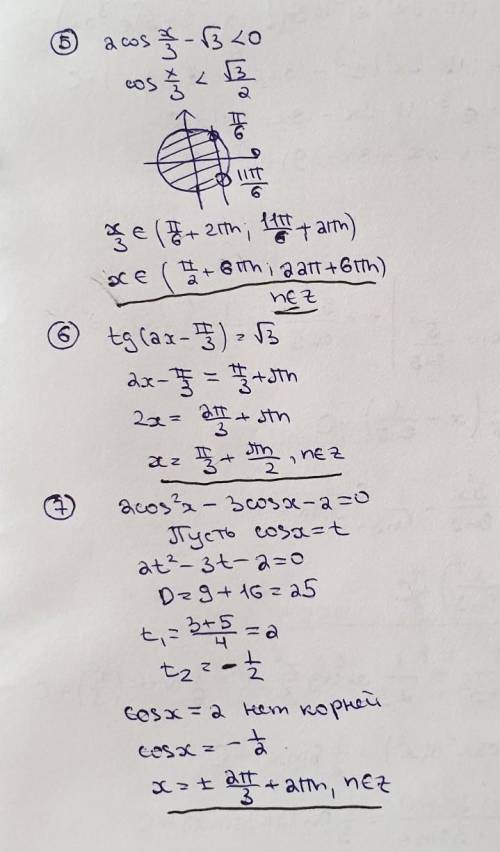 ⑤ 2cos x/3 - √3 < 0
cos x/3 < √3/2
π/6
0
11π/6
x/3 ∈ (π/6 + 2πn; 11π/6 + 2πn)
x ∈ (π/2 + 6πn; 22π + 6πn)
n∈z
⑥ tg(2x - π/3) = √3
2x - π/3 = π/3 + πn
2x = 2π/3 + πn
x = π/3 + πn/2, n∈z
⑦ 2cos²x - 3cosx - 2 = 0
Пусть cosx = t
2t² - 3t - 2 = 0
D = 9 + 16 = 25
t₁ = (3+5)/4 = 2
t₂ = - 1/2
cosx = 2 нет корней
cosx = - 1/2
x = ± 2π/3 + 2πn, n∈z